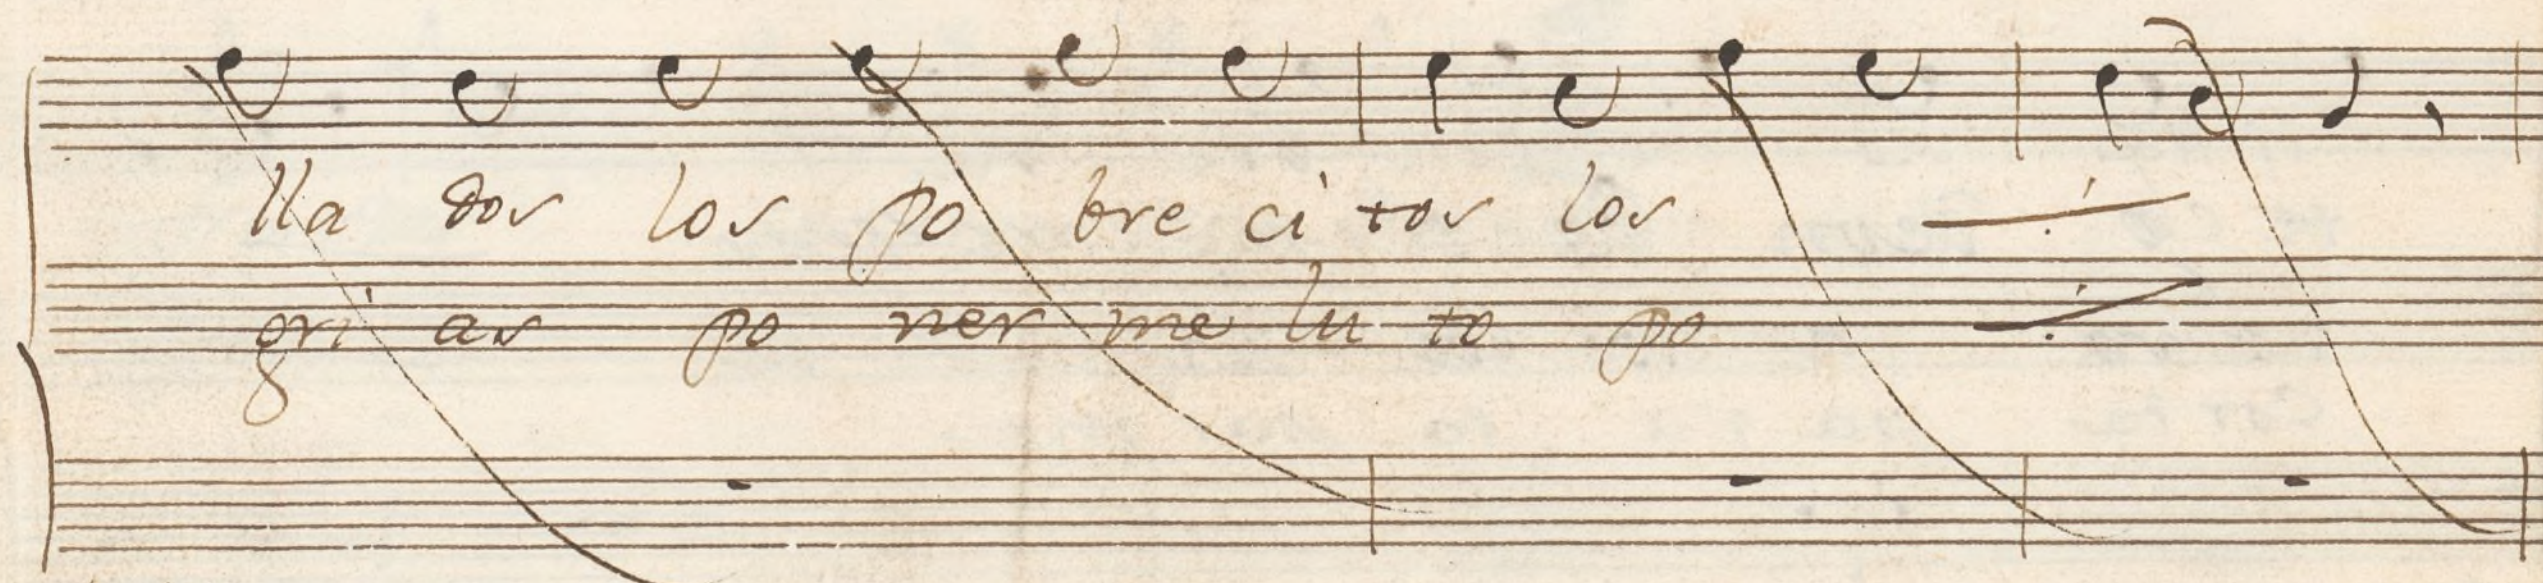 lla dos los po bre ci tos los
gri as po ner me lu to po